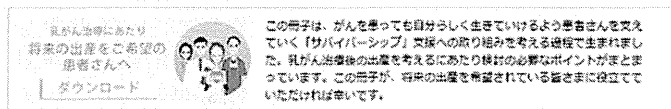 乳がん治療にあたり
将来の出産をご希望の
患者さんへ
ダウンロード
この冊子は、がんを患っても自分らしく生きていけるよう患者さんを支え
ていく「サバイバーシップ」支援への取り組みを考える過程で生まれまし
た。乳がん治療後の出産を考えるにあたり検討の必要なポイントがまとま
っています。この冊子が、将来の出産を希望されている皆さまに役立てて
いただければ幸いです。